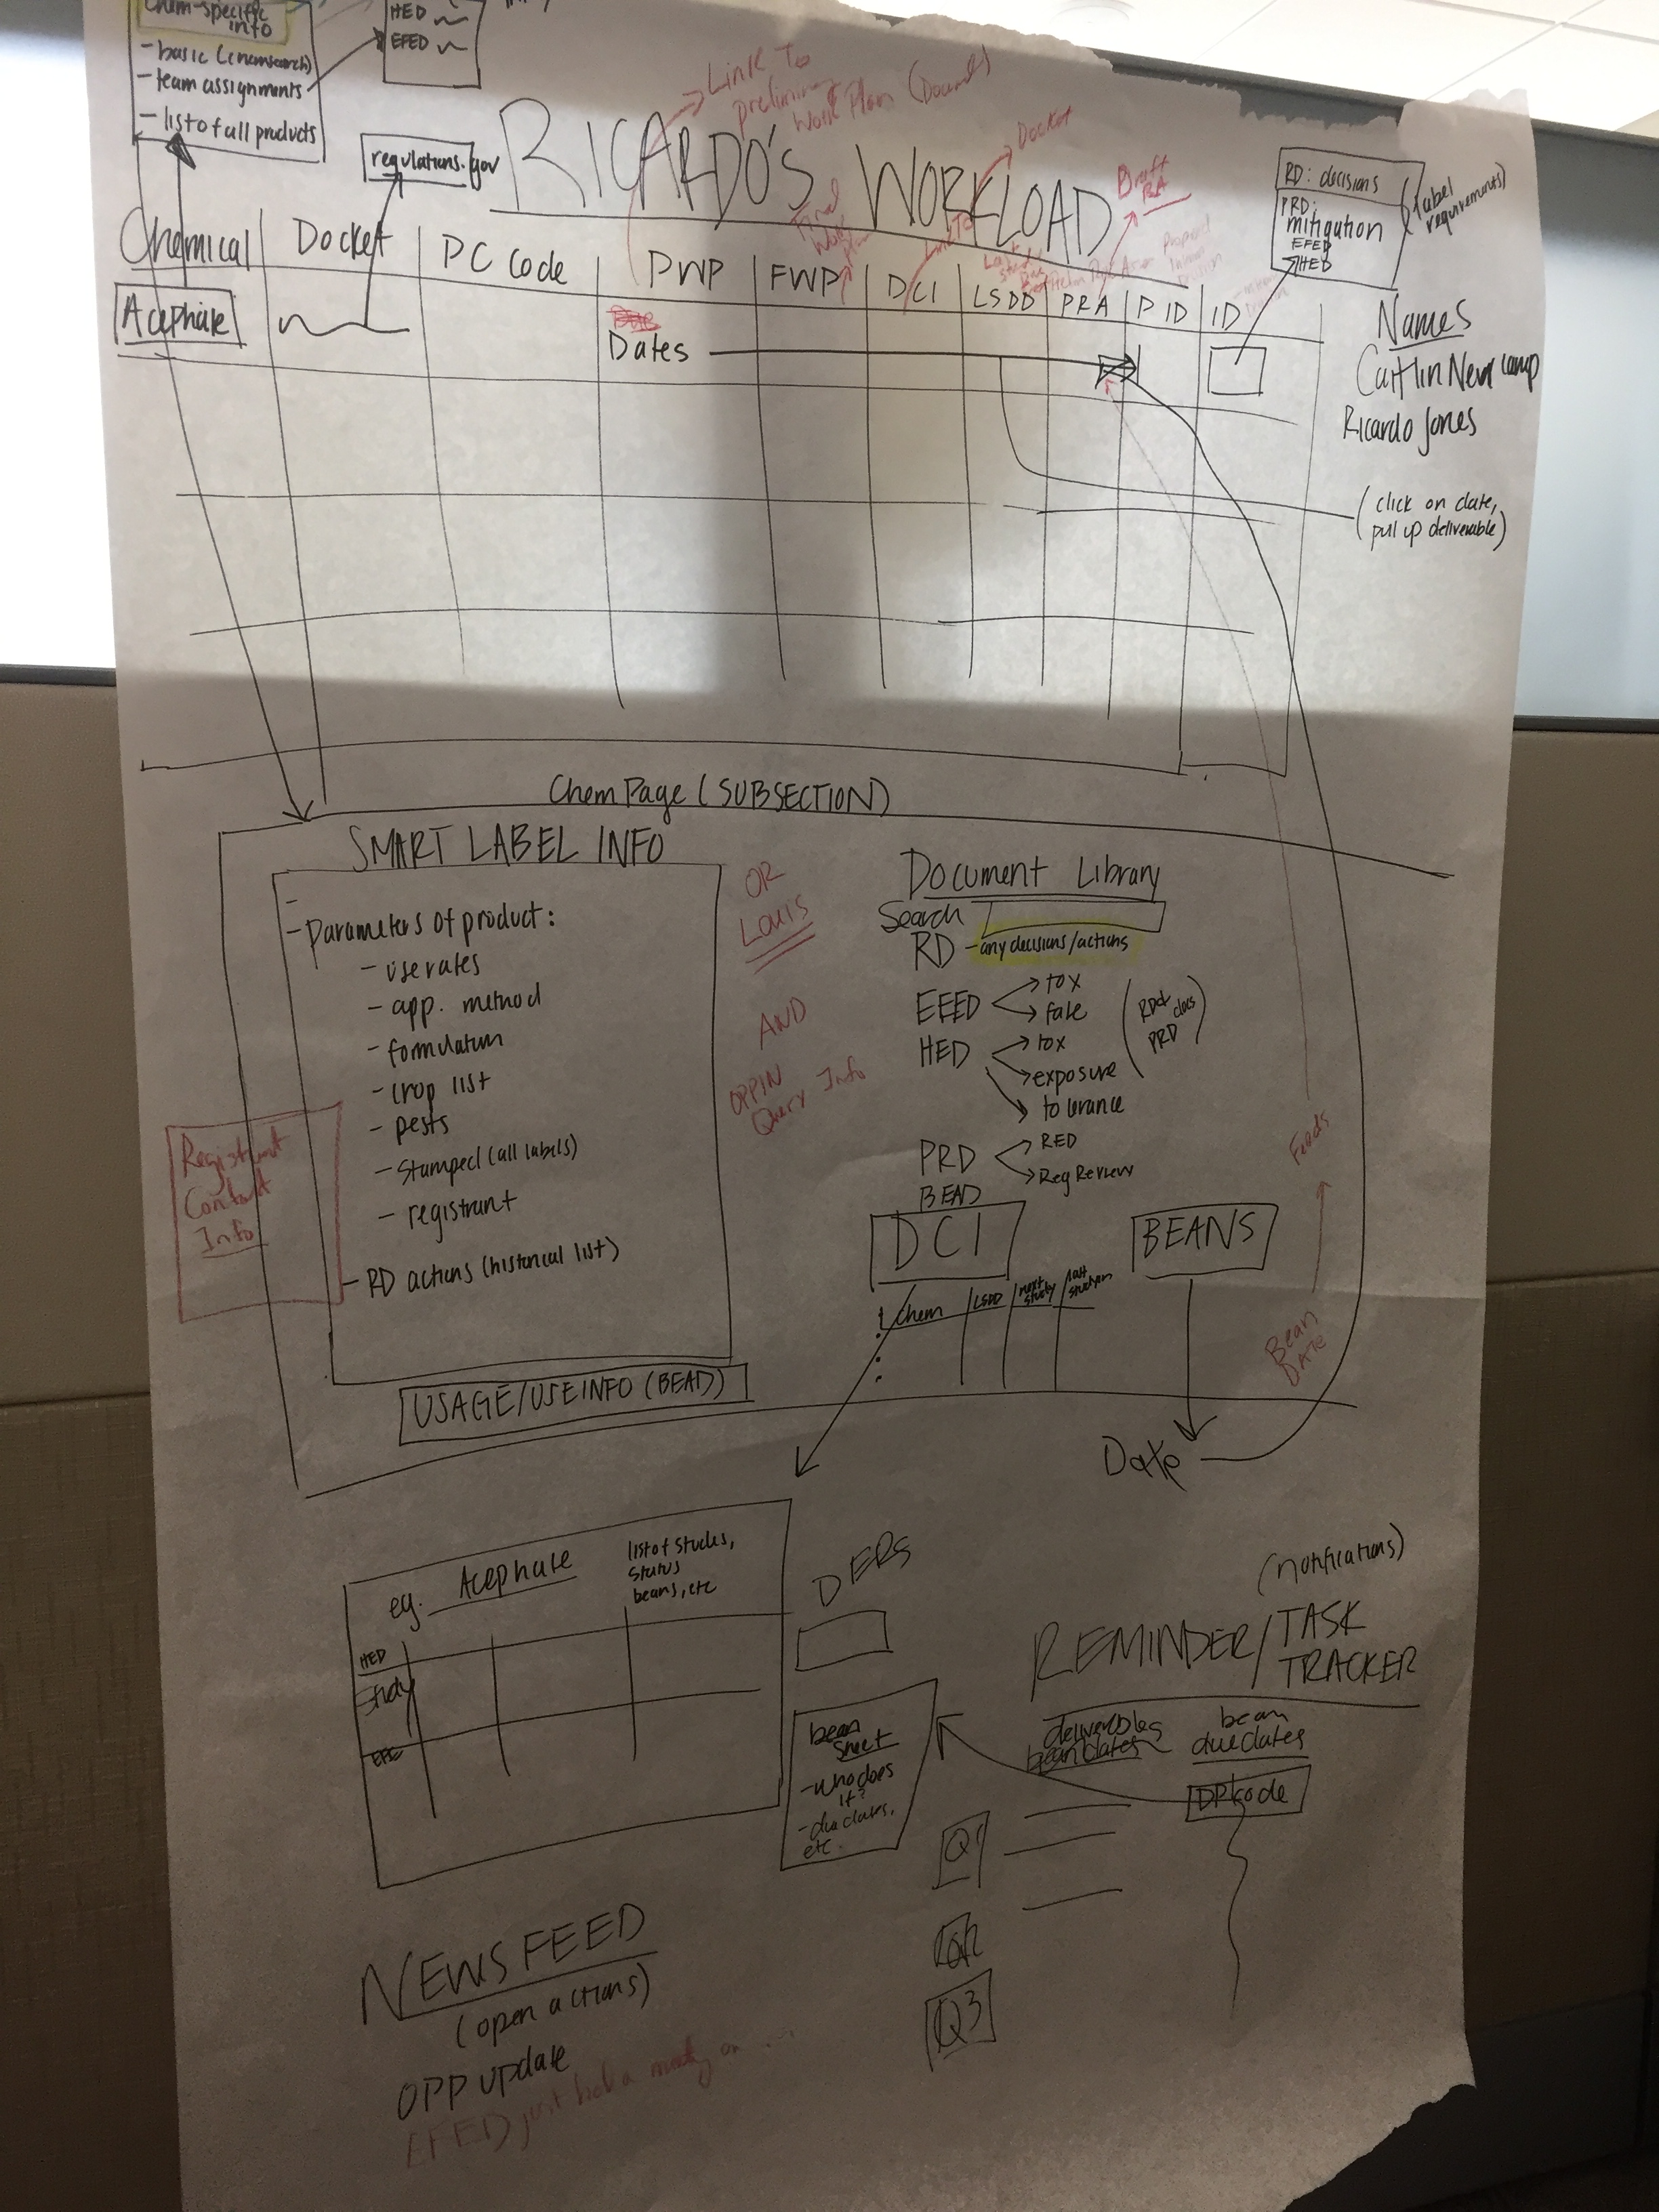 Chem-specific
info
- basic (chemsearch)
- team assignments
- list of all products
HED
EFED
regulations.gov
Link To
preliminary
Work Plan (Document)
RICARDO'S WORKLOAD
Docket
Draft
RA
Final
Work
Plan
Link To
RD: decisions
PRD:
mitigation
EFED
HED
(label
requirements)
Chemical
Docket
PC Code
PWP
FWP
DCI
LSDD
PRA
PID
ID
Acephate
Dates
Names
Caitlin Newcamp
Ricardo Jones
(click on date,
pull up deliverable)
Chem Page (SUBSECTION)
SMART LABEL INFO
-
- Parameters of product:
- use rates
- app. method
- formulation
- crop list
- pests
- Stamped (all labels)
- registrant
- RD actions (historical list)
Registrant
Contact
Info
OR
Louis
AND
OPPIN
Query Info
USAGE/USE INFO (BEAD)
Document Library
Search
RD - any decisions/actions
EFED
tox
fate
HED
tox
exposure
tolerance
PRD
RED
Reg Review
BEAD
DCI
Chem
LSDD
next
study
last
BEANS
Feeds
Bean
DATE
Date
eg. Acephate
list of studies,
status
beans, etc
HED
Study
DERS
bean
sheet
- who does
it?
- due dates,
etc.
(notifications)
REMINDER/TASK
TRACKER
deliverables
bean dates
bean
due dates
DP code
Q1
Q2
Q3
NEWSFEED
(open actions)
OPP update
EFED just had a meeting on ...